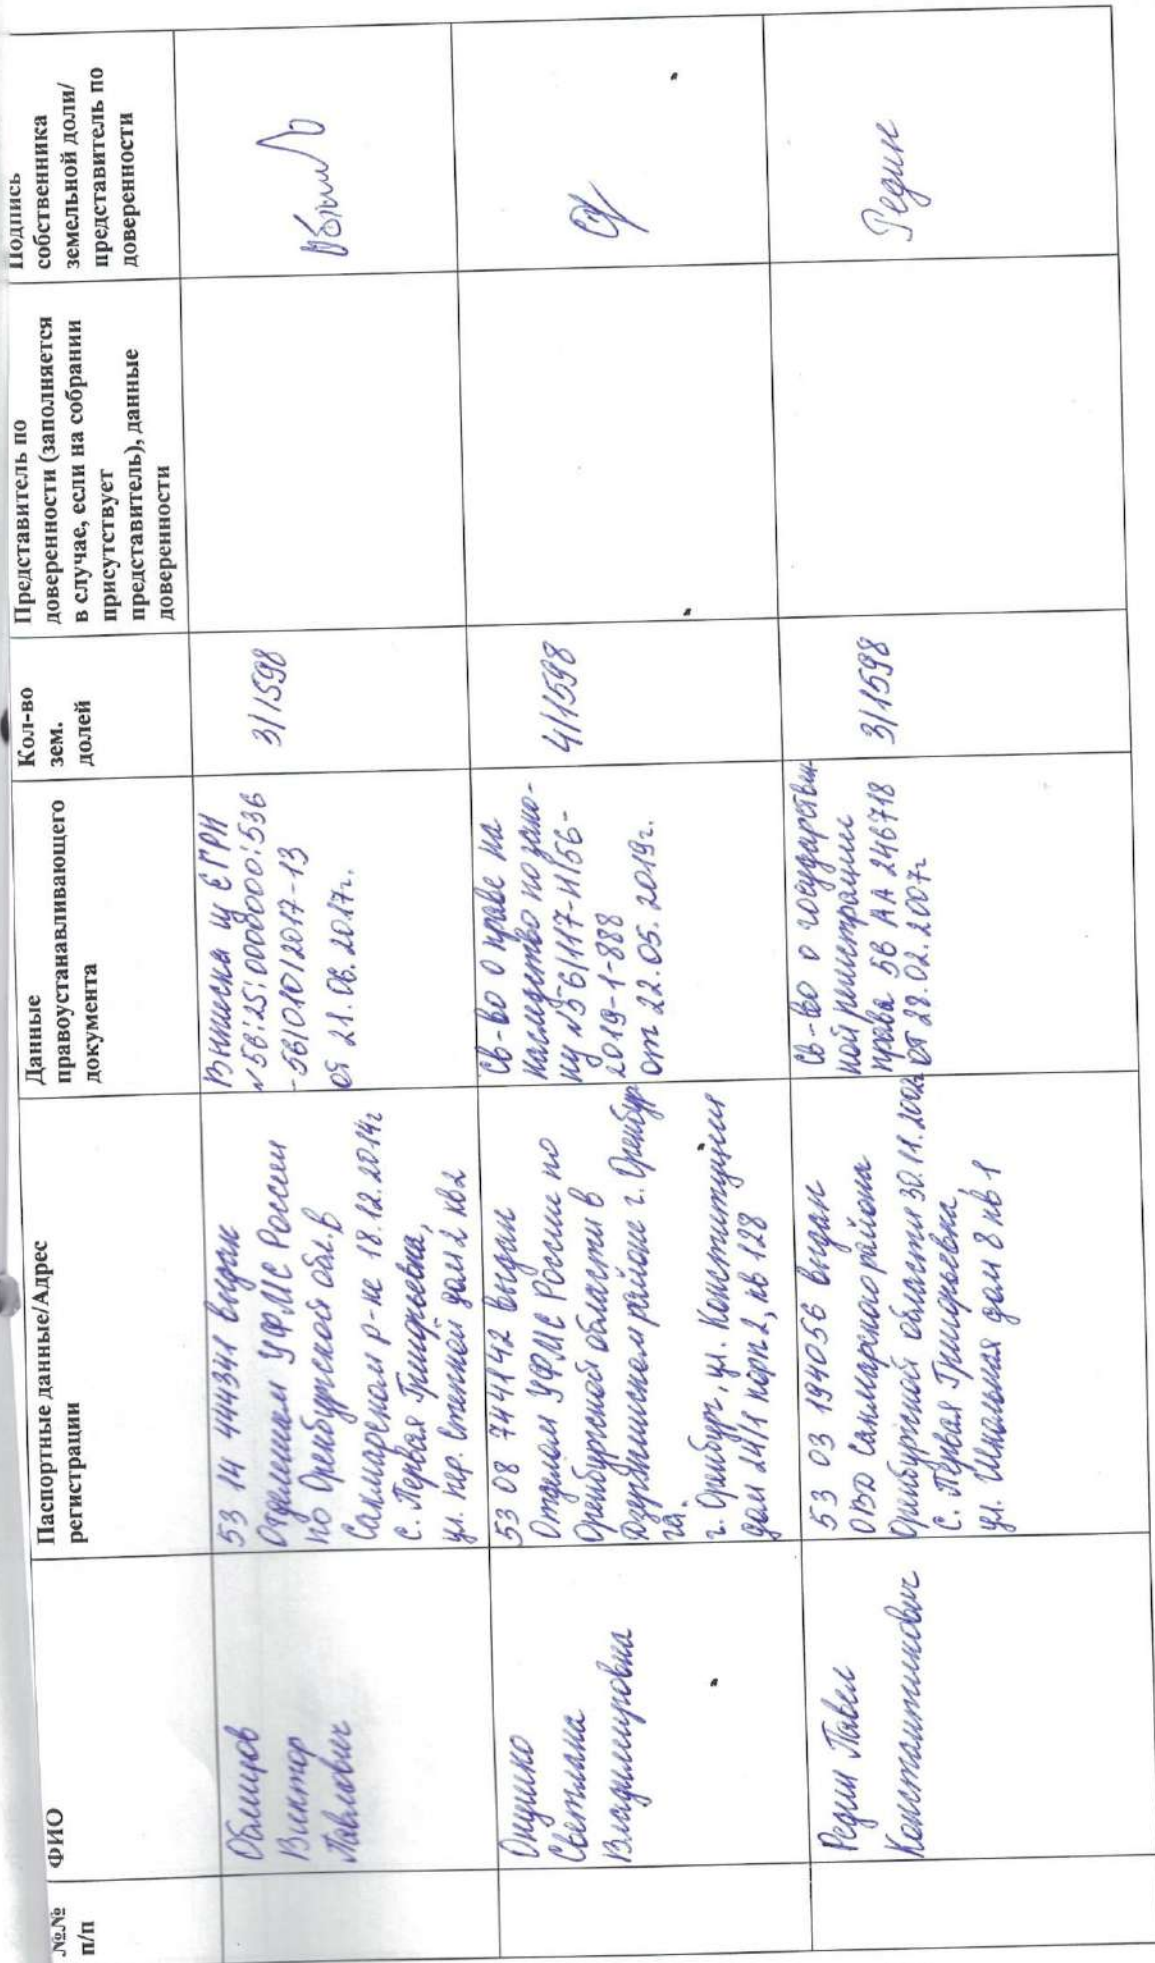 №№
п/п
ФИО
Паспортные данные/Адрес
регистрации
Данные
правоустанавливающего
документа
Кол-во
зем.
долей
Представитель по
доверенности (заполняется
в случае, если на собрании
присутствует
представитель), данные
доверенности
Подпись
собственника
земельной доли/
представитель по
доверенности
Облицов
Виктор
Павлович
53 14 444341 выдан
Отделением УФМС России
по Оренбургской обл. в
Сакмарском р-не 18.12.2014г
с. Первая Григорьевка,
ул. пер. Степной дом 2 кв2
Выписка из ЕГРН
№56:25:0000000:536
-56/010/2017-13
от 21.06.2017г.
3/1598
Онушко
Светлана
Владимировна
53 08 744142 выдан
Отделом УФМС России по
Оренбургской области в
Дзержинском районе г. Оренбур
га.
г. Оренбург, ул. Конституции
дом 24/1 корп 2, кв 128
Св-во о праве на
наследство по зако-
ну №56/117-н/56-
2019-1-888
от 22.05.2019г.
4/1598
Редин Павел
Константинович
53 03 194056 выдан
ОВД Сакмарского района
Оренбургской области 30.11.2002г
с. Первая Григорьевка,
ул. Школьная дом 8 кв 1
Св-во о государствен-
ной регистрации
права 56 АА 246718
от 28.02.2007г
3/1598
Редин